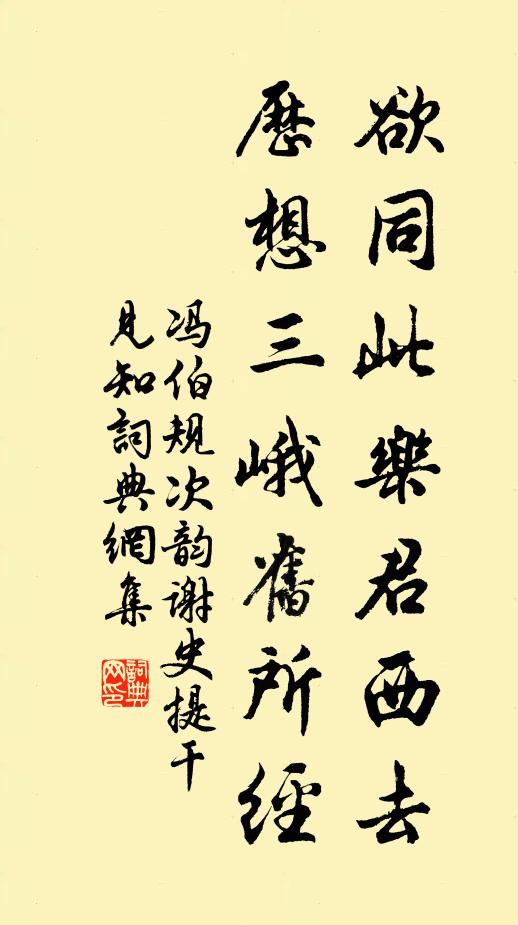 欲同此樂君西去
歷想三峨舊所經
冯伯規次韵谢史提干
見知詞典網集
詞典網印